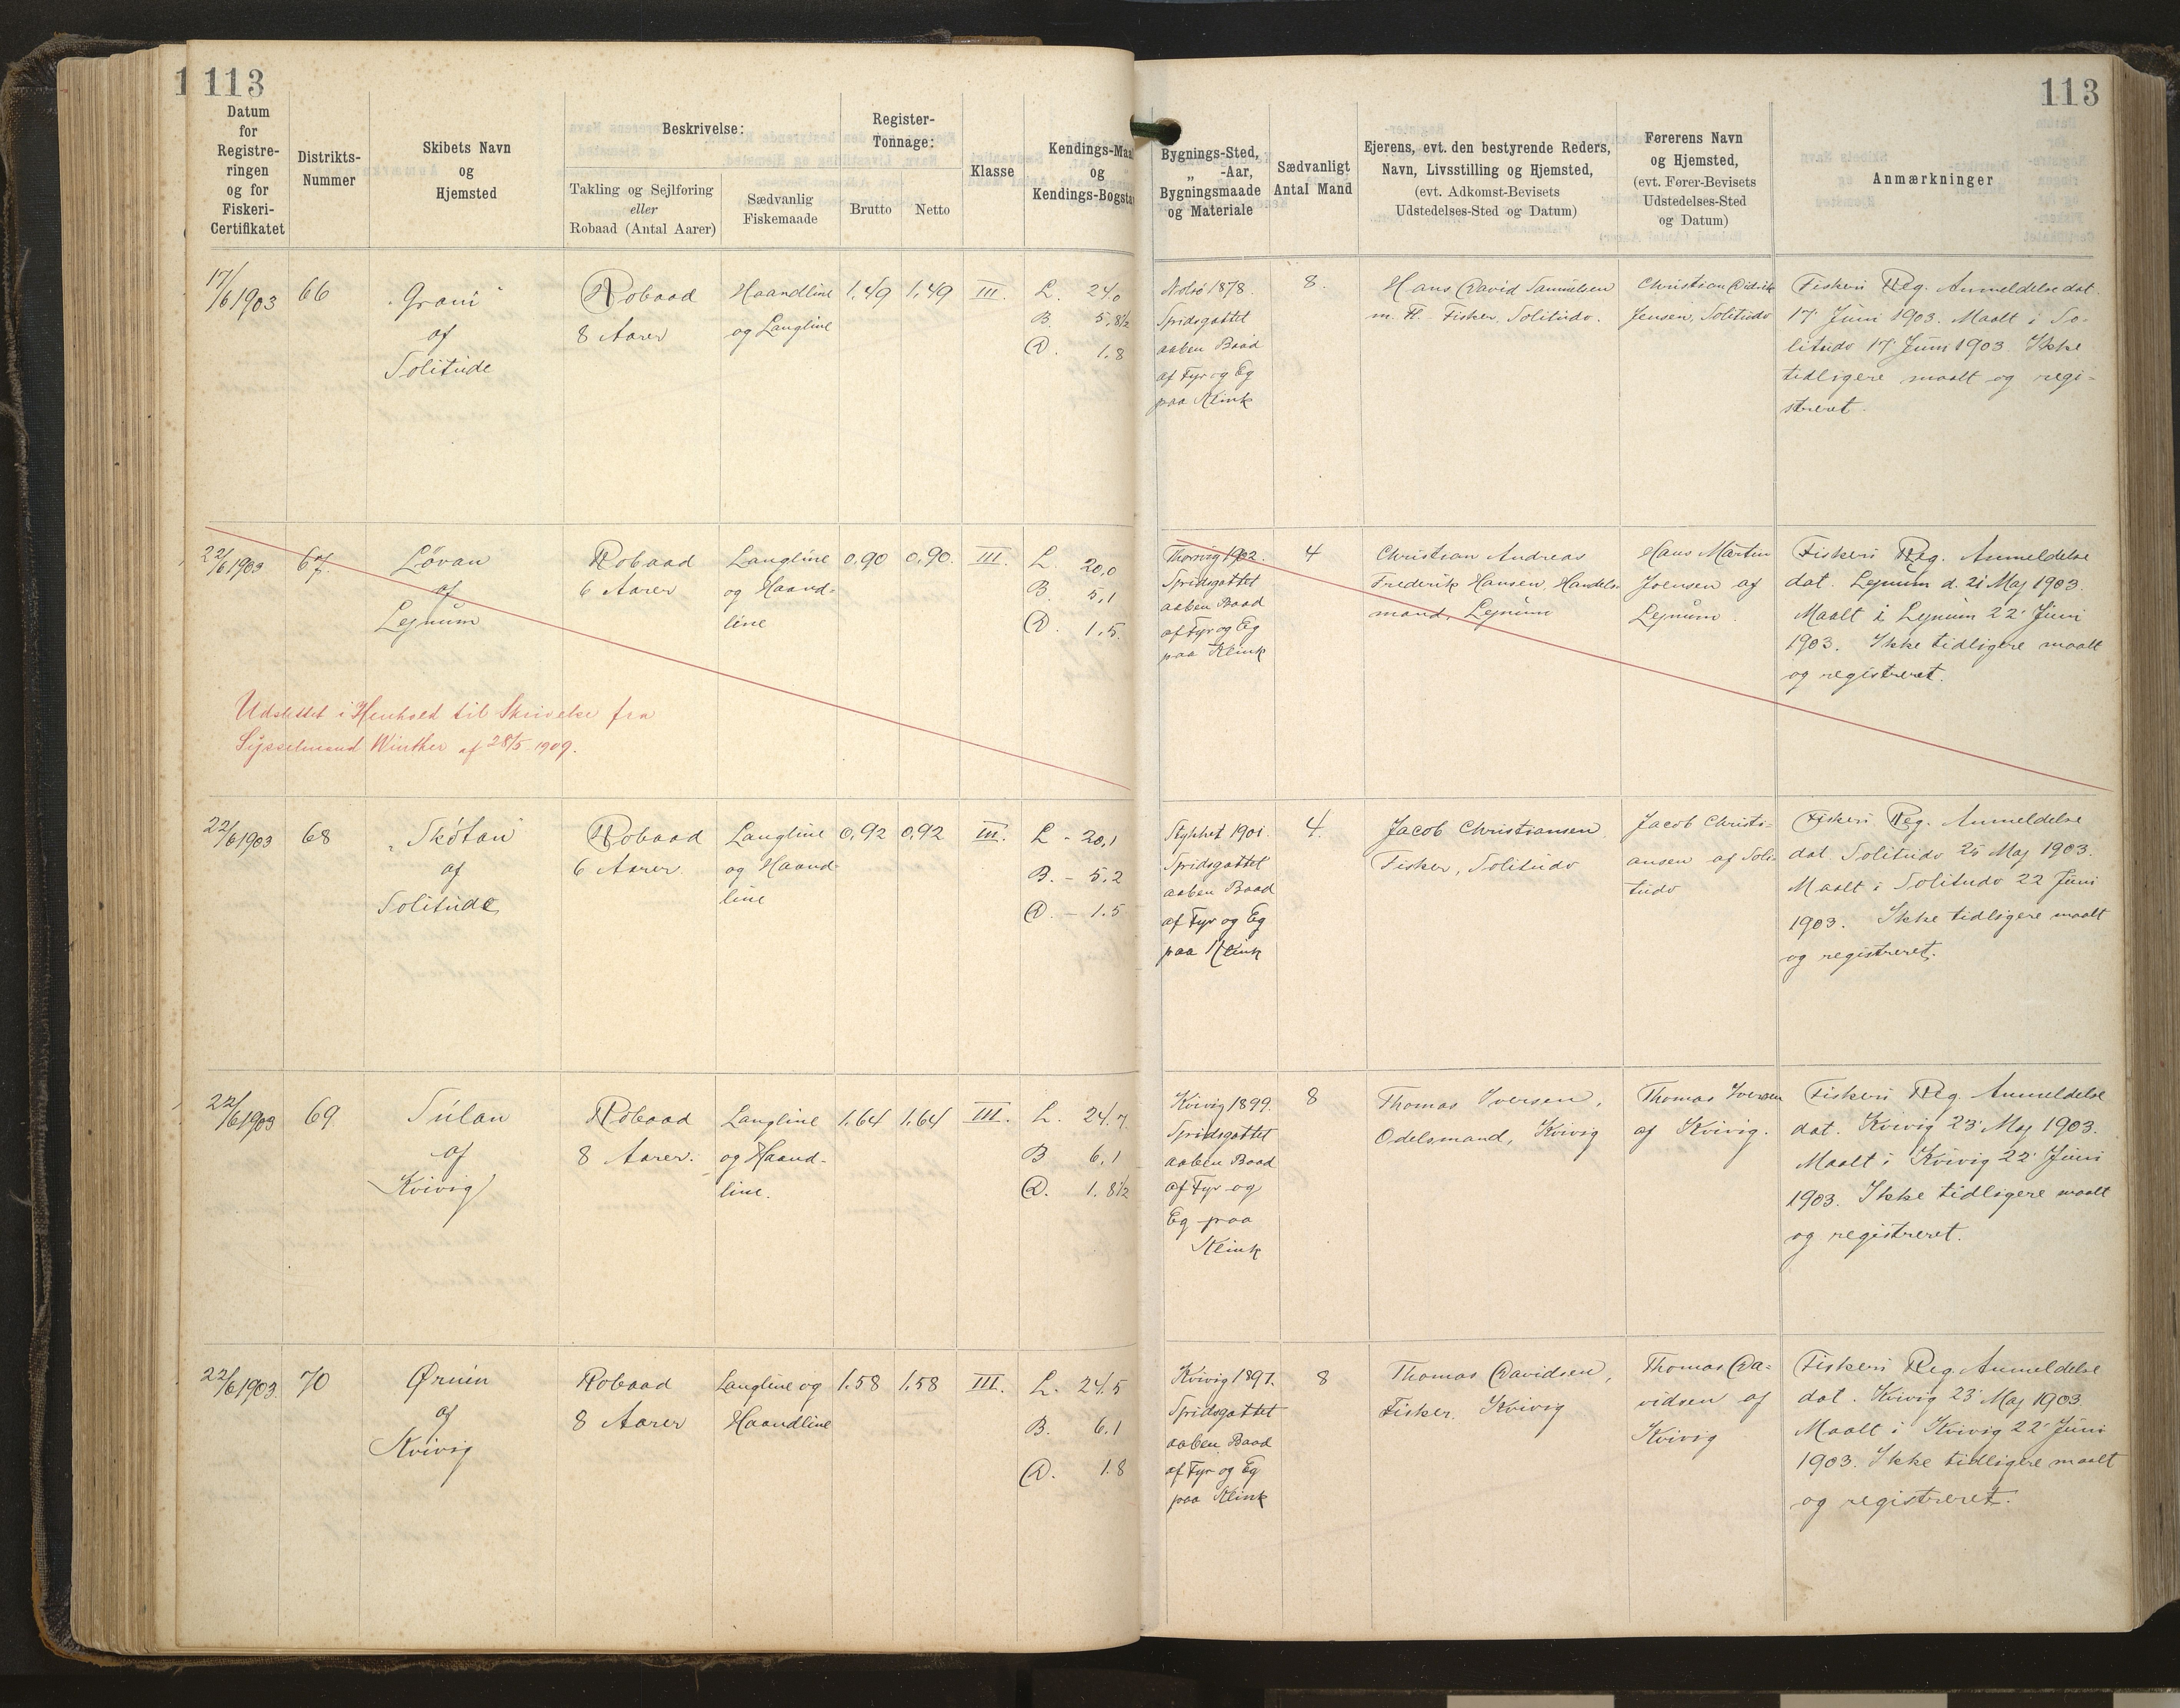 113
113
Datum for Registreringen og for Fiskeri-Certifikatet
Distrikts-Nummer
Skibets Navn og Hjemsted
Beskrivelse:
Takling og Sejlføring eller Robaad (Antal Aarer)
Sædvanlig Fiskemaade
Register-Tonnage:
Brutto
Netto
Klasse
Kendings-Maa
og
Kendings-Bogsta
Bygnings-Sted,
„ -Aar,
Bygningsmaade
og Materiale
Sædvanligt
Antal Mand
Ejerens, evt. den bestyrende Reders,
Navn, Livsstilling og Hjemsted,
(evt. Adkomst-Bevisets
Udstedelses-Sted og Datum)
Førerens Navn
og Hjemsted,
(evt. Fører-Bevisets
Udstedelses-Sted
og Datum)
Anmærkninger
17/6 1903
66
"Grani"
af
Solitude
Robaad
8 Aarer
Haandline
og Langline
1,49
1,49
III.
L. 24,0
B. 5,8½
D. 1,8
Nolsö 1878.
Spidsgattet
aaben Baad
af Fyr og Eg
paa Klink
8.
Hans David Samuelsen
m. Fl. - Fisker, Solitude.
Christian Didrik
Jensen, Solitude
Fiskeri Reg. Anmeldelse dat.
17' Juni 1903. Maalt i So-
litude 17' Juni 1903. Ikke
tidligere maalt og regi-
streret.
22/6 1903
67.
Løvan
af
Lejnum
Robaad
6 Aarer
Langline
og Haand-
line
0,90
0,90.
III.
L. 20,0
B. 5,1
D. 1,5.
Thorsvig 1902.
Spidsgattet
aaben Baad
af Fyr og Eg
paa Klink
4
Christian Andreas
Frederik Hansen, Handels-
mand, Lejnum
Hans Martin
Joensen af
Lejnum.
Fiskeri Reg. Anmeldelse
dat. Lejnum d. 21 Maj 1903.
Maalt i Lejnum 22' Juni
1903. Ikke tidligere maalt
og registreret.
Udslettet i Henhold til Skrivelse fra
Sysselmand Winther af 28/5 1909.
22/6 1903
68
"Skótan"
af
Solitude
Robaad
6 Aarer
Langline
og Haand-
line
0,92
0,92
III.
L - 20,1
B. - 5,2
D. - 1.5
Stykket 1901.
Spidsgattet
aaben Baad
af Fyr og Eg
paa Klink
4.
Jacob Christiansen
Fisker, Solitude
Jacob Christi-
ansen af Soli-
tude
Fiskeri Reg. Anmeldelse
dat Solitude 25 Maj 1903.
Maalt i Solitude 22 Juni
1903. Ikke tidligere maalt
og registreret.
22/6 1903
69
Súlan
af
Kvivig
Robaad
8 Aarer.
Langline
og Haand-
line.
1,64
1,64
III.
L. 24,7
B 6,1
D. 1. 8½
Kvivig 1899.
Spidsgattet
aaben Baad
af Fyr og
Eg paa
Klink
8
Thomas Iversen,
Odelsmand, Kvivig
Thomas Iversen
af Kvivig.
Fiskeri Reg Anmeldelse
dat. Kvivig 23' Maj 1903.
Maalt i Kvivig 22' Juni
1903. Ikke tidligere maalt
og registreret.
22/6 1903.
70
Ørnin
af
Kvivig
Robaad
8 Aarer
Langline og
Haandline
1,58
1,58
III.
L. 24,5
B. 6,1
D. 1.8
Kvivig 1897.
Spidsgattet
aaben Baad
af Fyr og Eg
paa Klink
8
Thomas Davidsen,
Fisker. Kvivig
Thomas Da-
vidsen af
Kvivig
Fiskeri Reg. Anmeldelse
dat. Kvivig 23' Maj 1903.
Maalt i Kvivig 22' Juni
1903. Ikke tidligere maalt
og registreret.